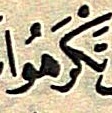 تَكْرَهُوا